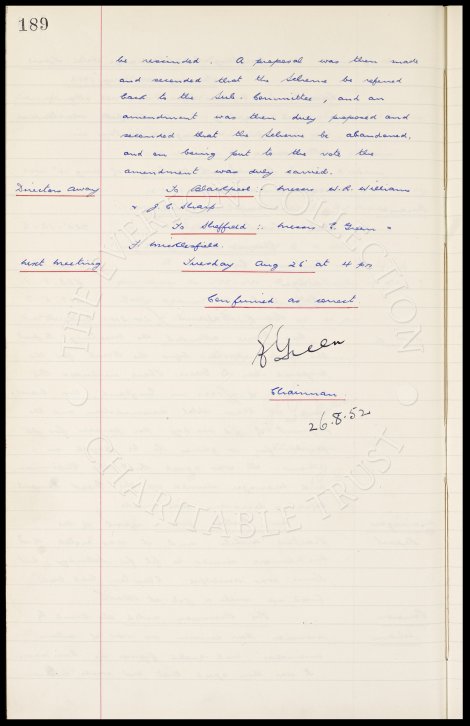 189
be rescinded. A proposal was then made
and seconded that the Scheme be referred
back to the Sub-Committee, and an
amendment was then duly proposed and
seconded that the Scheme be abandoned,
and on being put to the vote the
amendment was duly carried.
Directors away To Blackpool:- Messrs W.R. Williams
& J.C. Sharp.
To Sheffield:- Messrs E. Green &
F. Micklesfield.
Next Meeting Tuesday Aug 26 at 4 pm
Confirmed as correct
E Green
Chairman
26.8.52
THE EVERTON COLLECTION
CHARITABLE TRUST